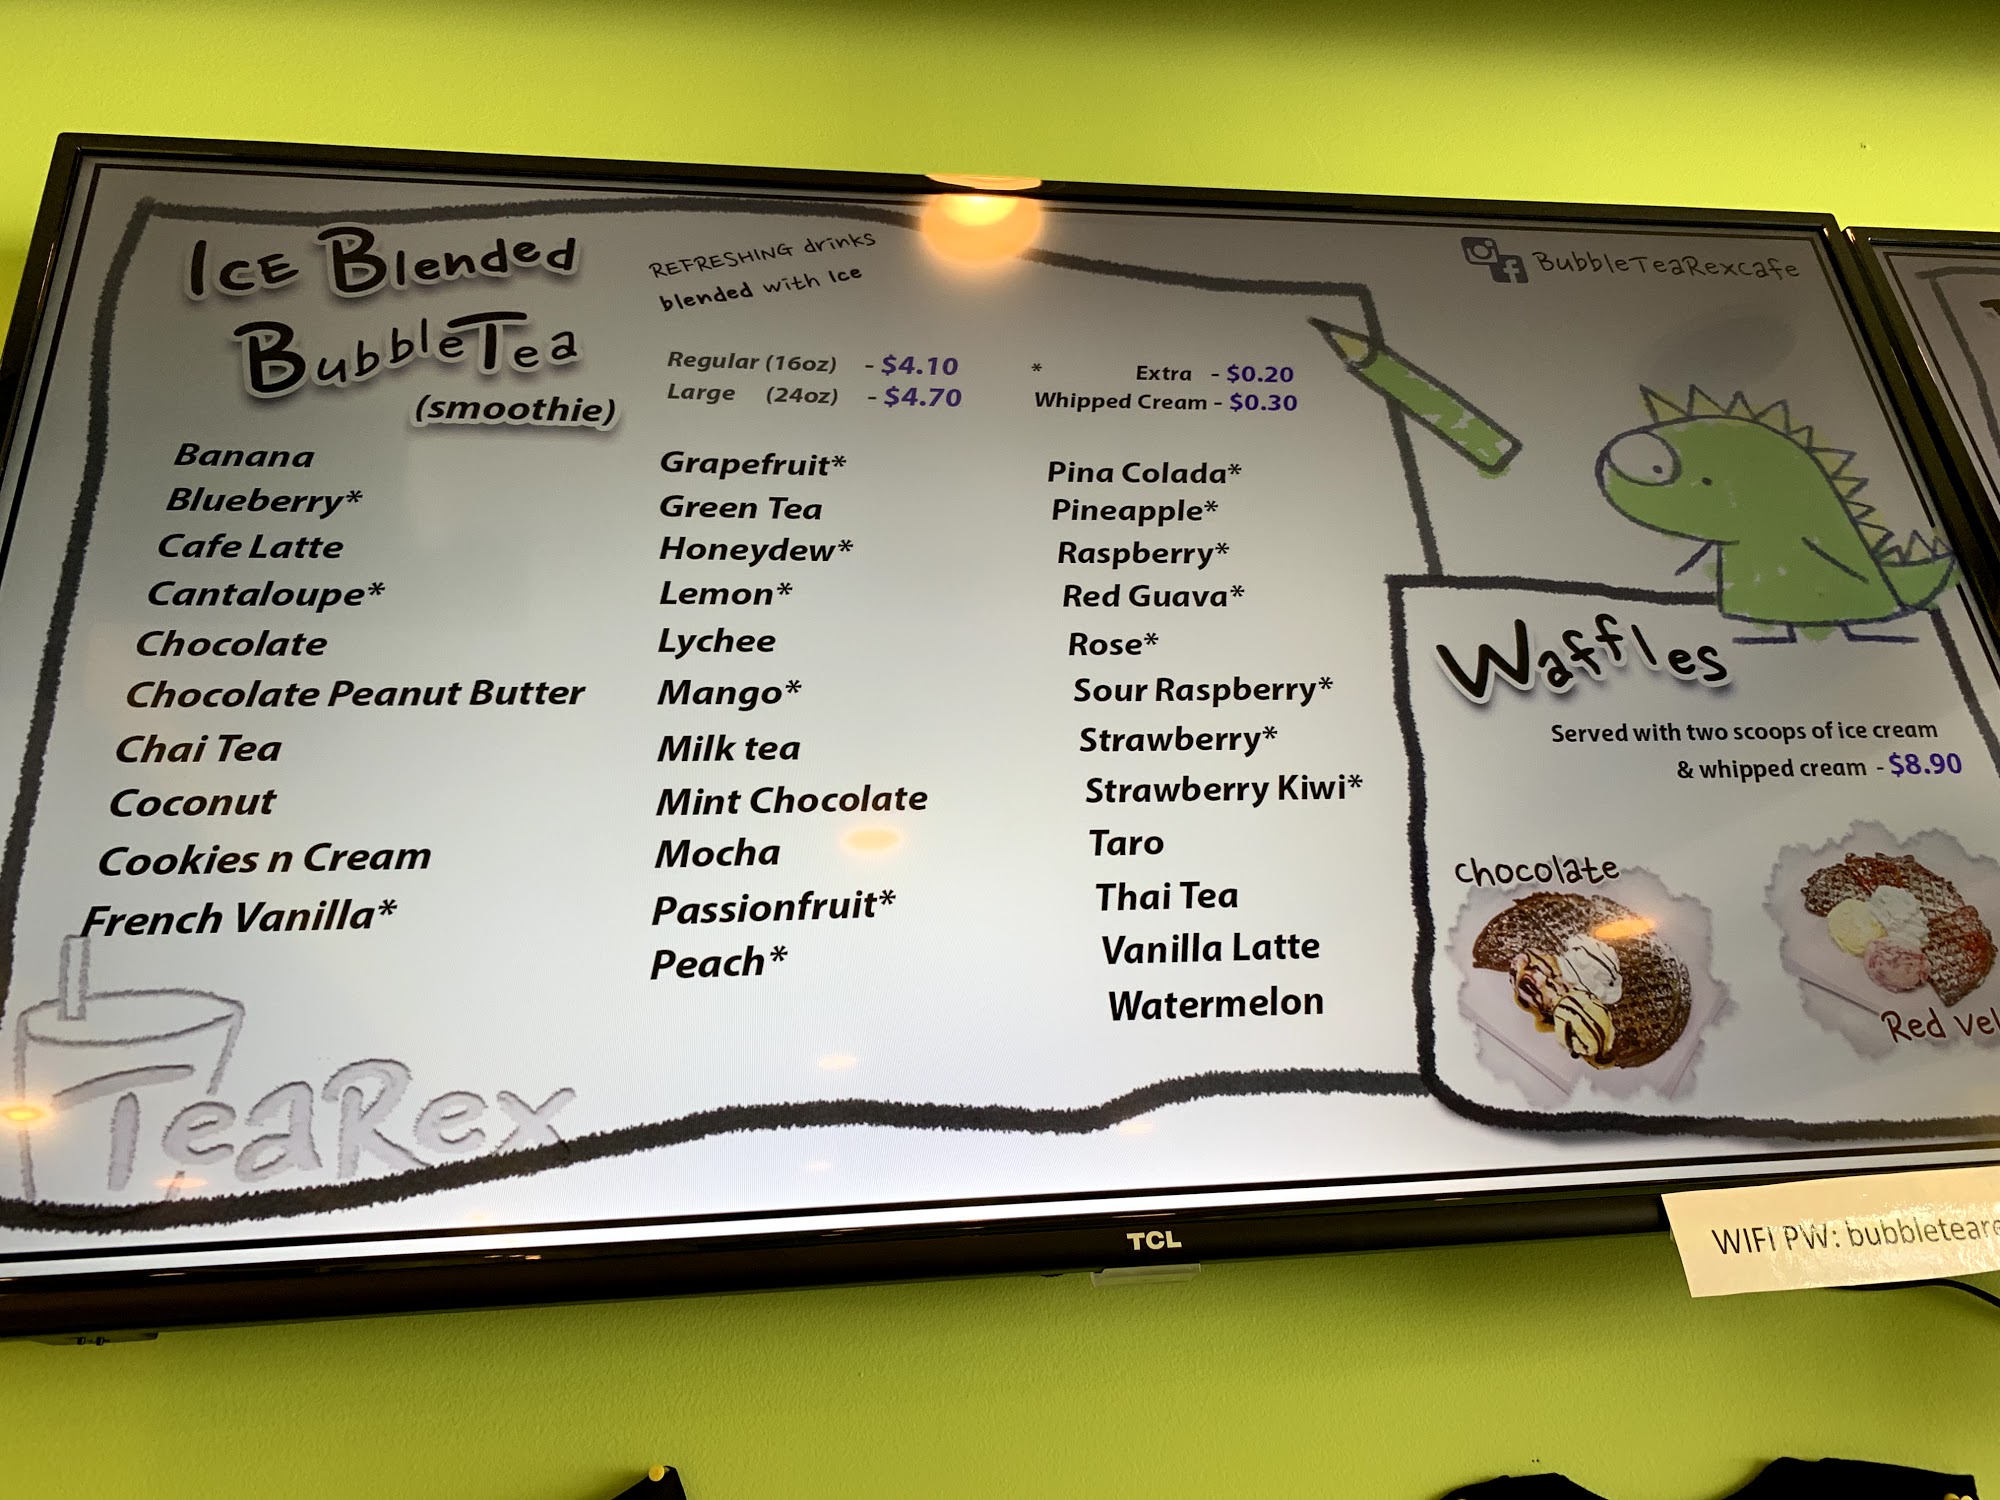 Ice Blended
BubbleTea
(smoothie)
REFRESHING drinks
blended with Ice
Regular (16oz) - $4.10
Large (24oz) - $4.70
* Extra - $0.20
Whipped Cream - $0.30
Banana
Blueberry*
Cafe Latte
Cantaloupe*
Chocolate
Chocolate Peanut Butter
Chai Tea
Coconut
Cookies n Cream
French Vanilla*
Grapefruit*
Green Tea
Honeydew*
Lemon*
Lychee
Mango*
Milk tea
Mint Chocolate
Mocha
Passionfruit*
Peach*
Pina Colada*
Pineapple*
Raspberry*
Red Guava*
Rose*
Sour Raspberry*
Strawberry*
Strawberry Kiwi*
Taro
Thai Tea
Vanilla Latte
Watermelon
TeaRex
BubbleTeaRexcafe
Waffles
Served with two scoops of ice cream
& whipped cream - $8.90
chocolate
Red Vel
TCL
WIFI PW: bubbleteare